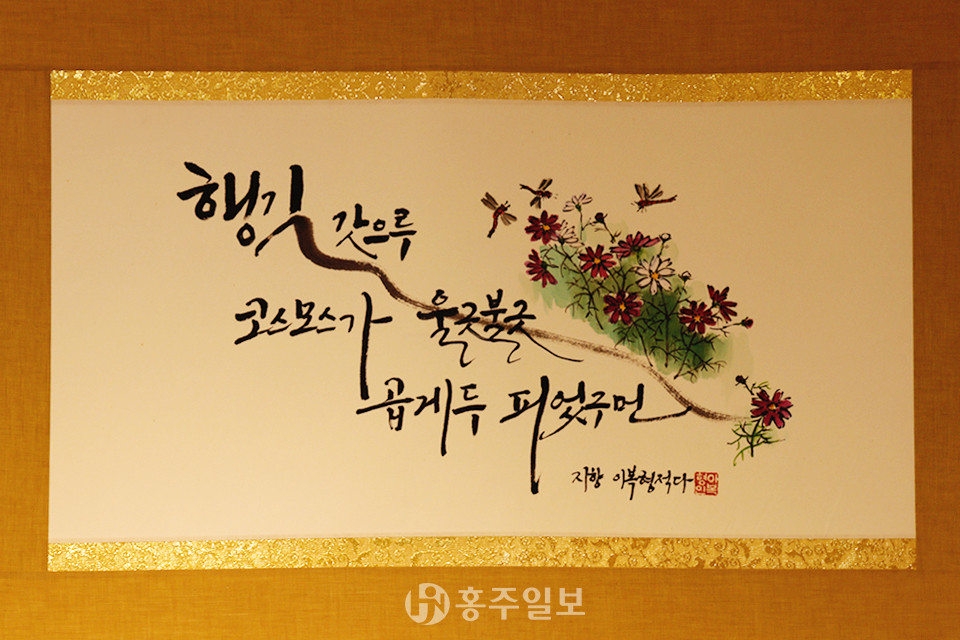 행길 갓으루
코스모스가 울긋불긋
곱게두 피었구먼
지향 이복형적다
홍주일보